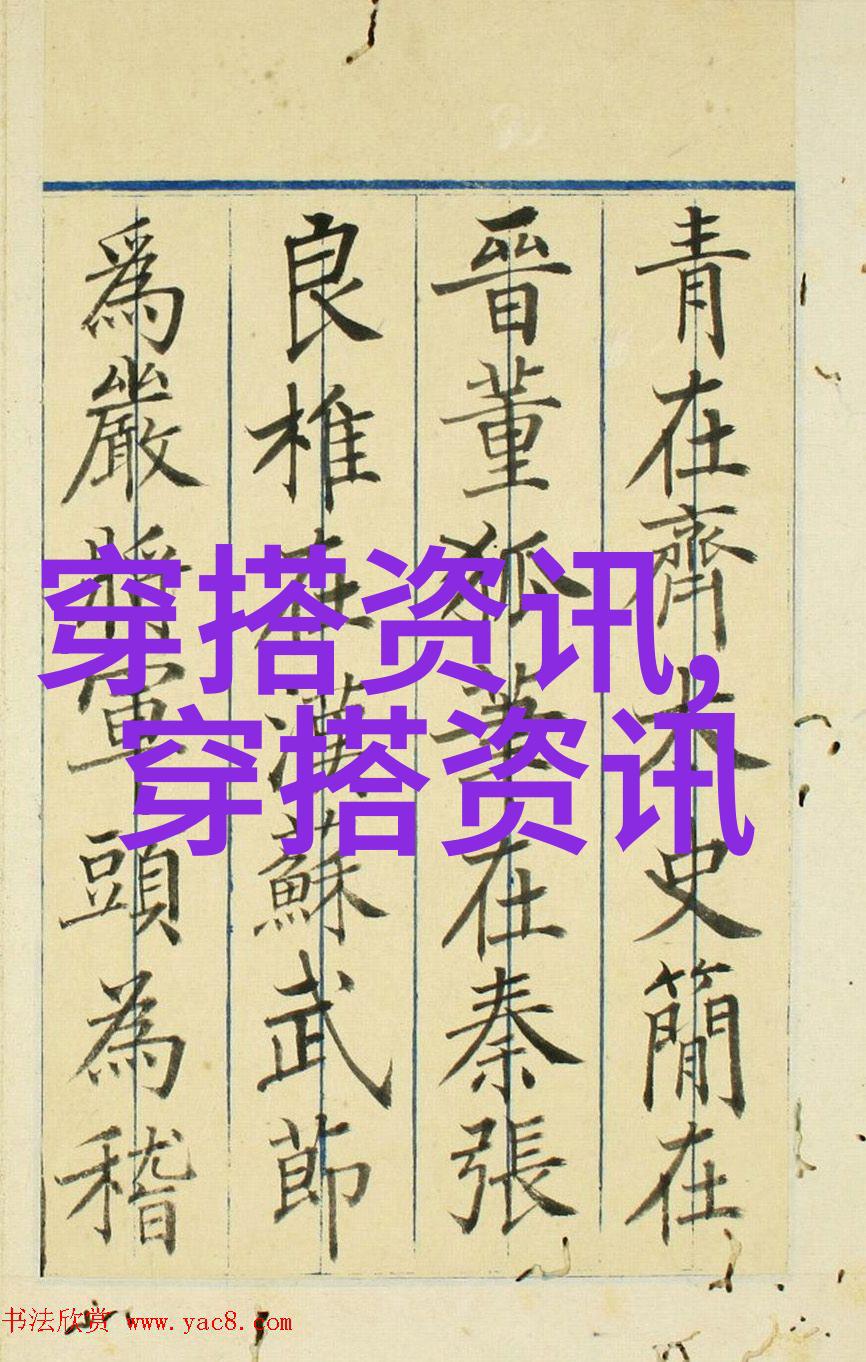 青在齊太史簡在
晉董狐筆在秦張
良椎在漢蘇武節
爲嚴將軍頭為稽
穿搭资讯,
穿搭资讯
书法欣赏 www.yac8.com